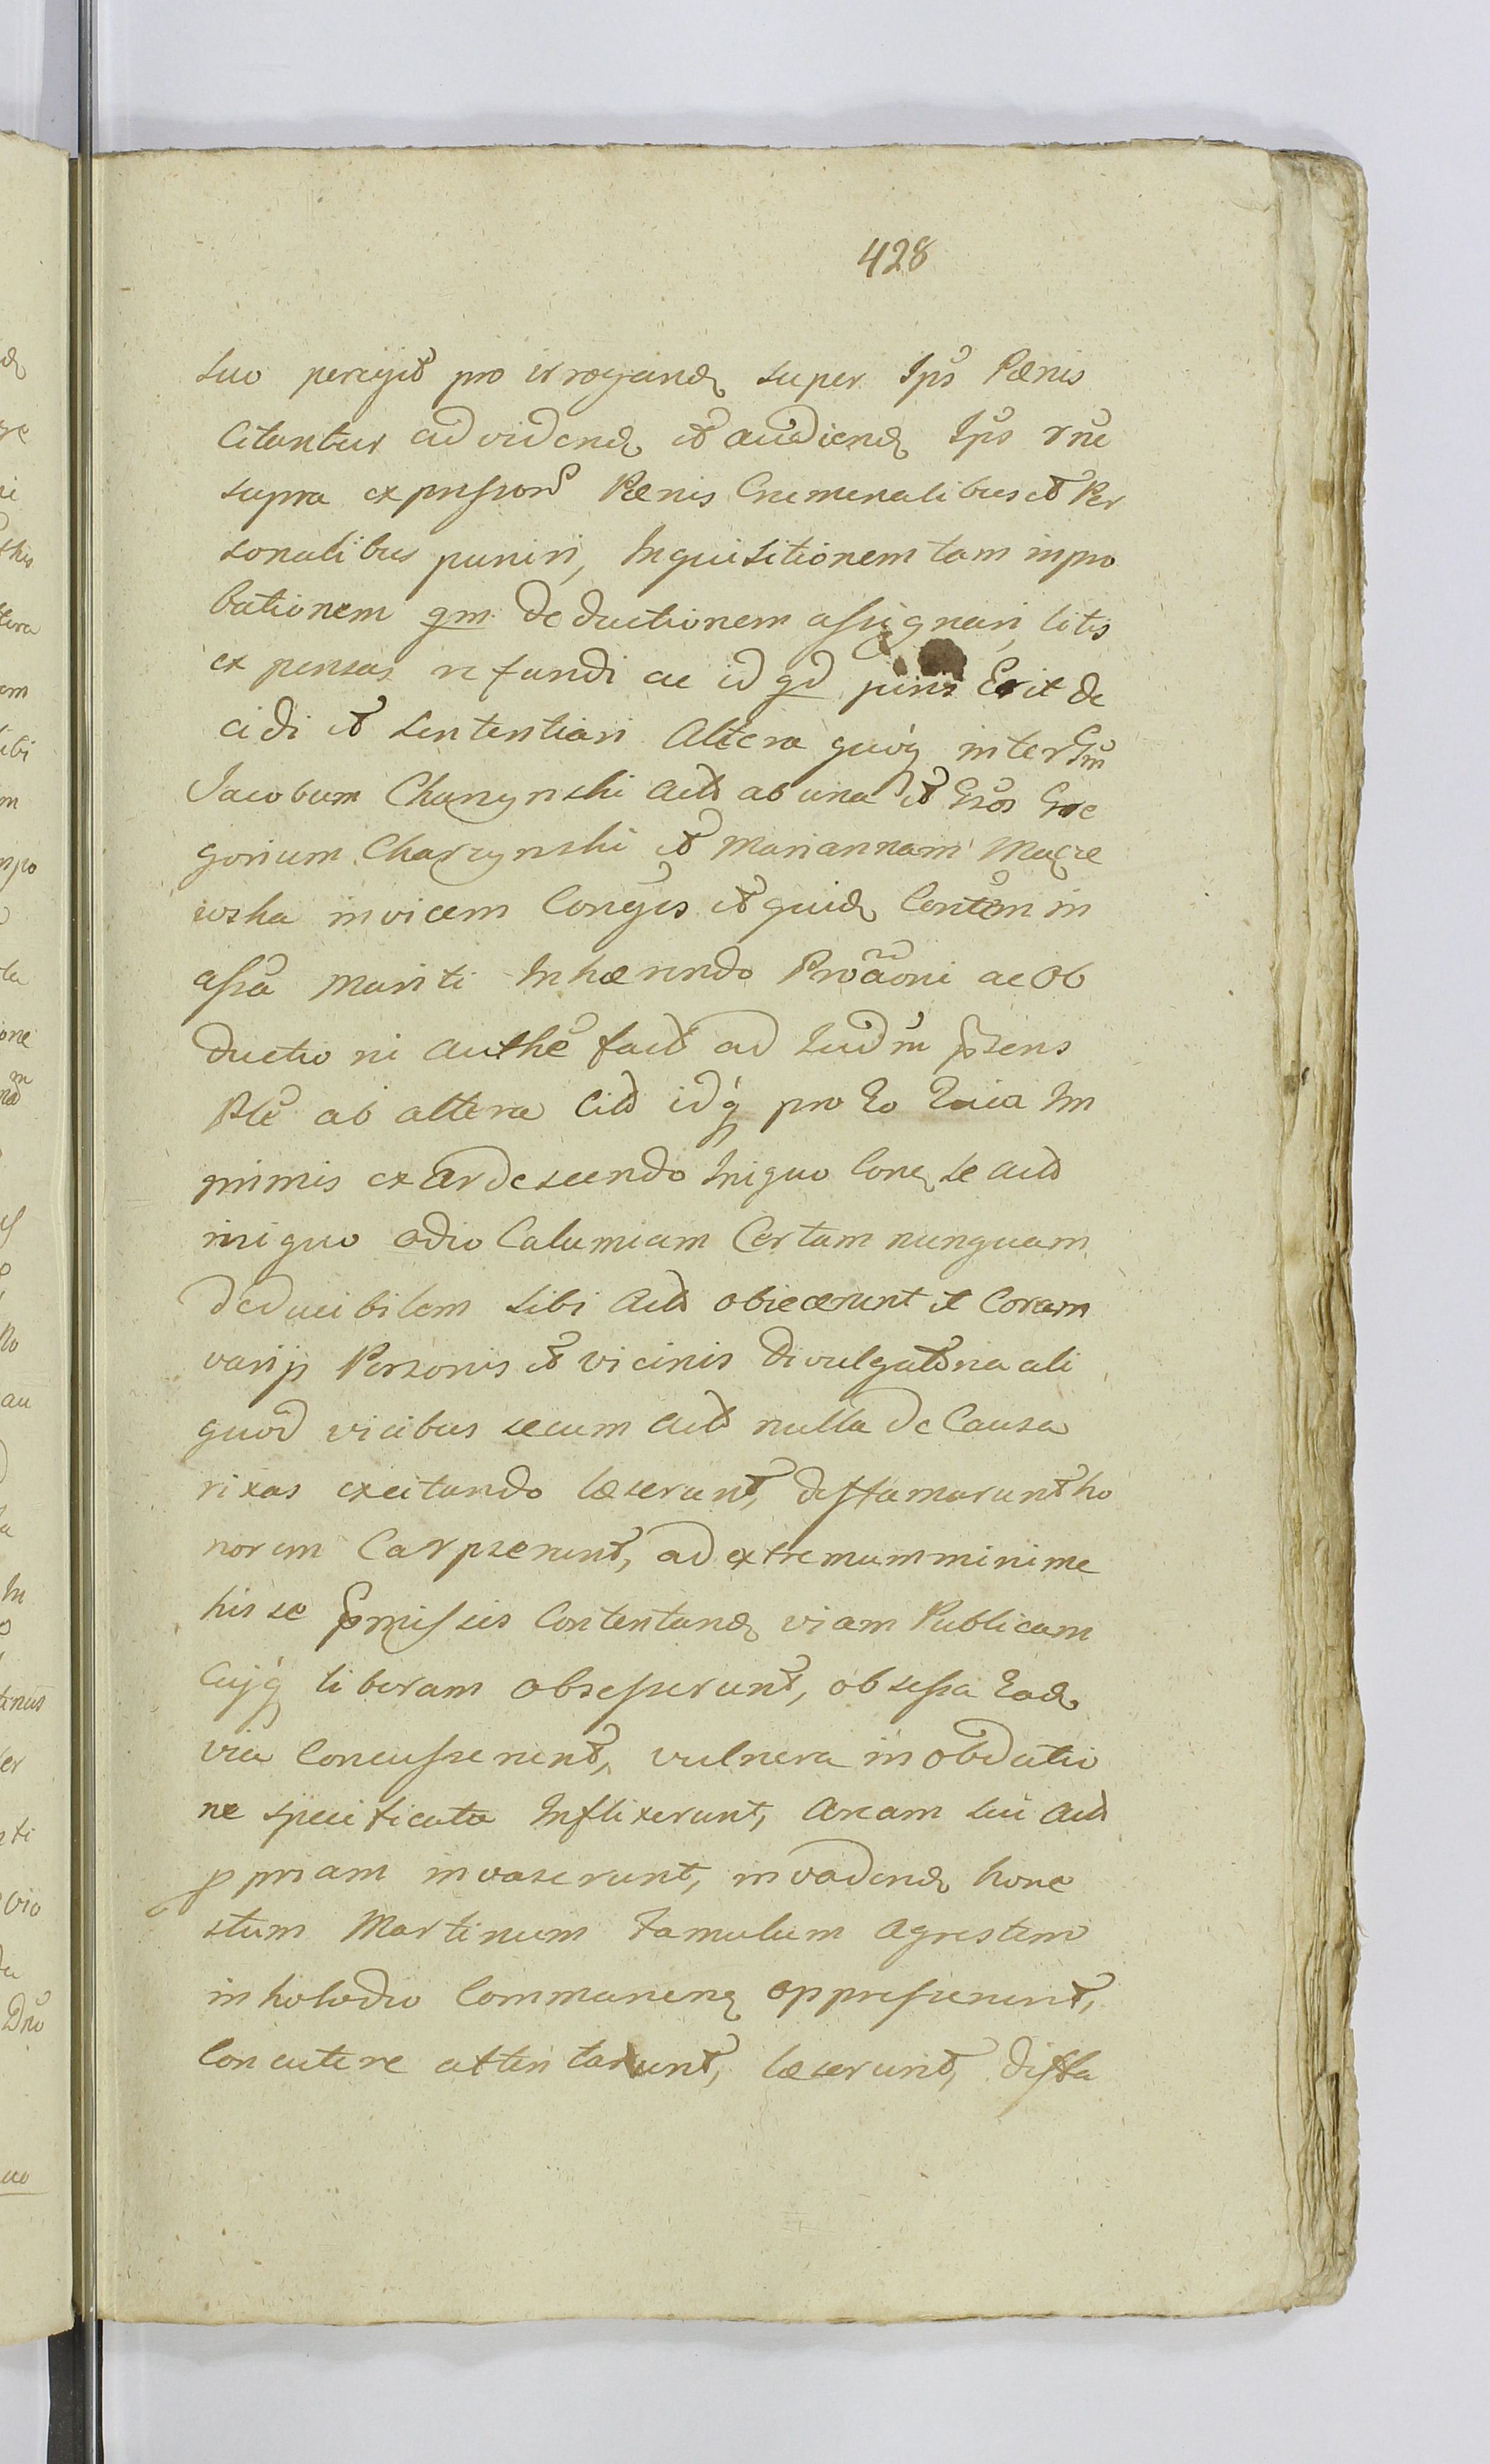 428
suo peregit pro irrogand super Ips Pœnis
Citantur ad vidend et audiend Ips rne
supra expressor Pœnis Criminalibus et Per
sonalibus puniri, Inquisitionem tam in pro
bationem qm deductionem assignari, litis
expensas refundi ac id qd juris Erit de
cidi et sententiari Altera quoq inter Gsm
Jacobum Charzynski Act ab una et Gsos Gre
gorium Charzynski et Mariannam Macie
ioska invicem Conges et quid Contem in
assa Mariti Inhærendo Proaoni ac Ob
ductioni Authe fact ad Judm psens
Ple ab altera Cit idq pro Eo Quia Im
primis exardescendo Iniquo Con se act
iniquo odio Calumiam Certam nunquam
deducibilem sibi Act obiecerunt et Coram
varijs Personis et vicinis divulgat
quod vicibus secum Act nulla de Causa
rixas excitando læserunt, deffamarunt ho
norem Carpserunt, ad extremum minime
hisce pmissis Contentand viam Publicam
Cujq liberam obsesserunt, obsessa Ead
via Concusserunt, vulnera in obductio
ne specificata Inflixerunt, Aream sui Act
ppriam invaserunt, invadend hone
stum Martinum famulum agrestem
in holodio Commanen oppresserunt,
Concutere attentarunt, læserunt, diffa